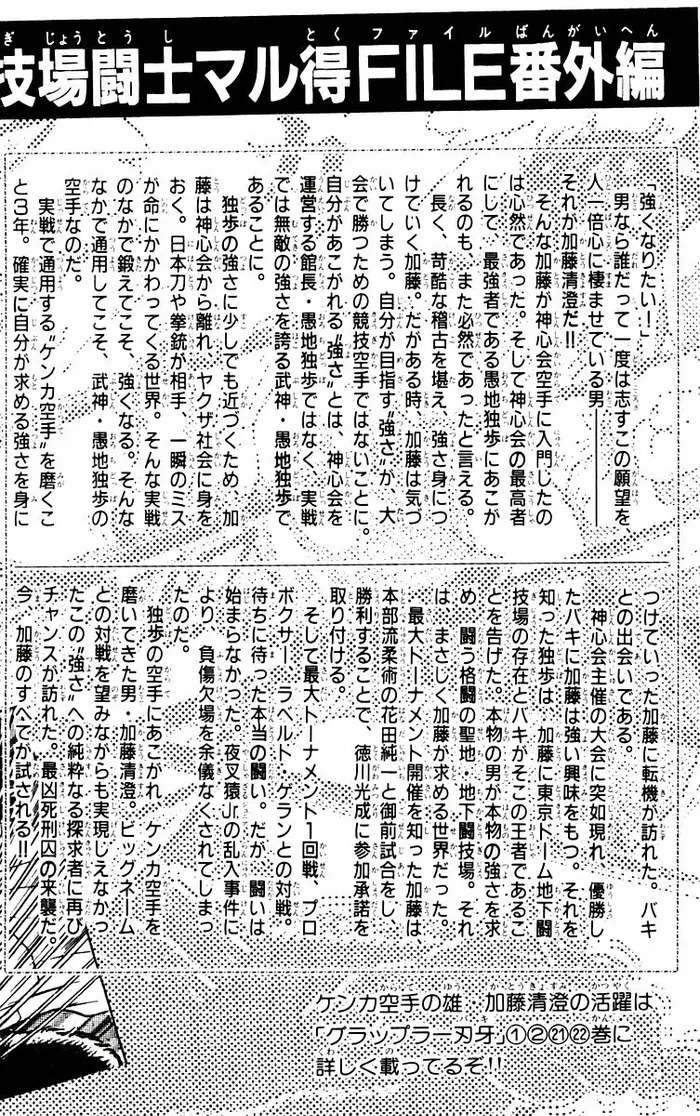 技場闘士マル得FILE番外編
「強くなりたい！」
男なら誰だって一度は志すこの願望を、
人一倍心に棲ませている男――
それが加藤清澄だ!!
そんな加藤が神心会空手に入門したの
は必然であった。そして神心会の最高者
にして、最強者である愚地独歩にあこが
れるのも、また必然であったと言える。
長く、苛酷な稽古を堪え、強さ身につ
けていく加藤。だがある時、加藤は気づ
いてしまう。自分が目指す“強さ”が、大
会で勝つための競技空手ではないことに。
自分があこがれる“強さ”とは、神心会を
運営する館長・愚地独歩ではなく、実戦
では無敵の強さを誇る武神・愚地独歩で
あることに。
独歩の強さに少しでも近づくため、加
藤は神心会から離れ、ヤクザ社会に身を
おく。日本刀や拳銃が相手、一瞬のミス
が命にかかわってくる世界。そんな実戦
のなかで鍛えてこそ、強くなる。そんな
なかで通用してこそ、武神・愚地独歩の
空手なのだ。
実戦で通用する“ケンカ空手”を磨くこ
と3年。確実に自分が求める強さを身に
つけていった加藤に転機が訪れた。バキ
との出会いである。
神心会主催の大会に突如現れ、優勝し
たバキに加藤は強い興味をもつ。それを
知った独歩は、加藤に東京ドーム地下闘
技場の存在とバキがそこの王者であるこ
とを告げた。本物の男が本物の強さを求
め、闘う格闘の聖地・地下闘技場。それ
は、まさしく加藤が求める世界だった。
最大トーナメント開催を知った加藤は
本部流柔術の花田純一と御前試合をし、
勝利することで、徳川光成に参加承諾を
取り付ける。
そして最大トーナメント1回戦、プロ
ボクサー、ラベルト・ゲランとの対戦。
待ちに待った本当の闘い。だが、闘いは
始まらなかった。夜叉猿Jr.の乱入事件に
より、負傷欠場を余儀なくされてしまっ
たのだ。
独歩の空手にあこがれ、ケンカ空手を
磨いてきた男・加藤清澄。ビッグネーム
との対戦を望みながらも実現しえなかっ
たこの“強さ”への純粋なる探求者に再び
チャンスが訪れた。最凶死刑囚の来襲だ。
今、加藤のすべてが試される!!
ケンカ空手の雄・加藤清澄の活躍は
「グラップラー刃牙」①②㉑㉒巻に
詳しく載ってるぞ!!